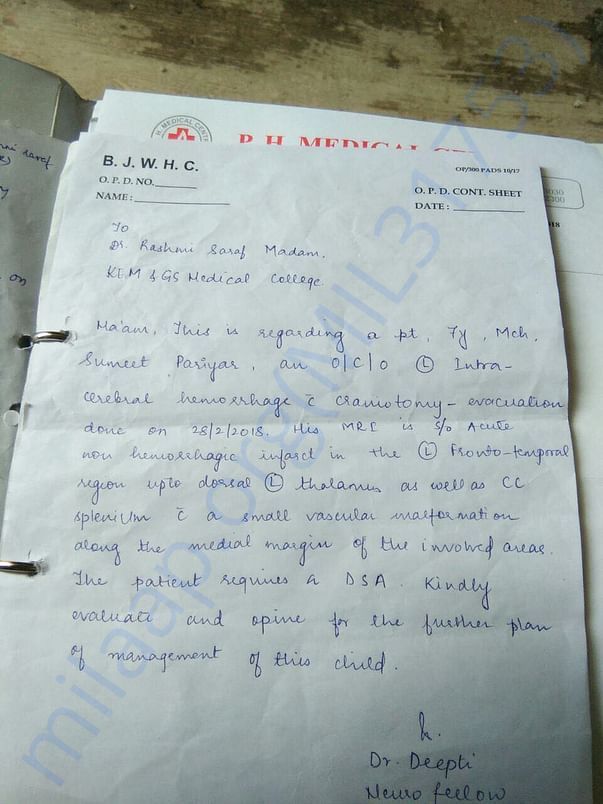 B. H. MEDICAL CE
H. MEDICAL CENTR
B. J. W. H. C.
OP/300 PADS 10/17
O. P. D. NO.
O. P. D. CONT. SHEET
NAME :
DATE :
To
Dr. Rashmi Saraf Madam,
KEM & GS Medical College.
Ma'am, This is regarding a pt, 7y, Mch,
Sumeet Pariyar, an O/C/O Ⓛ Intra-
cerebral hemorrhage c̄ craniotomy - evacuation
done on 28/2/2018. His MRI is s/o Acute
non hemorrhagic infarct in the Ⓛ Fronto-temporal
region upto dorsal Ⓛ thalamus as well as CC
splenium c̄ a small vascular malformation
along the medial margin of the involved areas.
The patient requires a DSA. Kindly
evaluate and opine for the further plan
of management of this child.
Dr. Deepti
Neuro fellow
milaap.org(MIL317533)